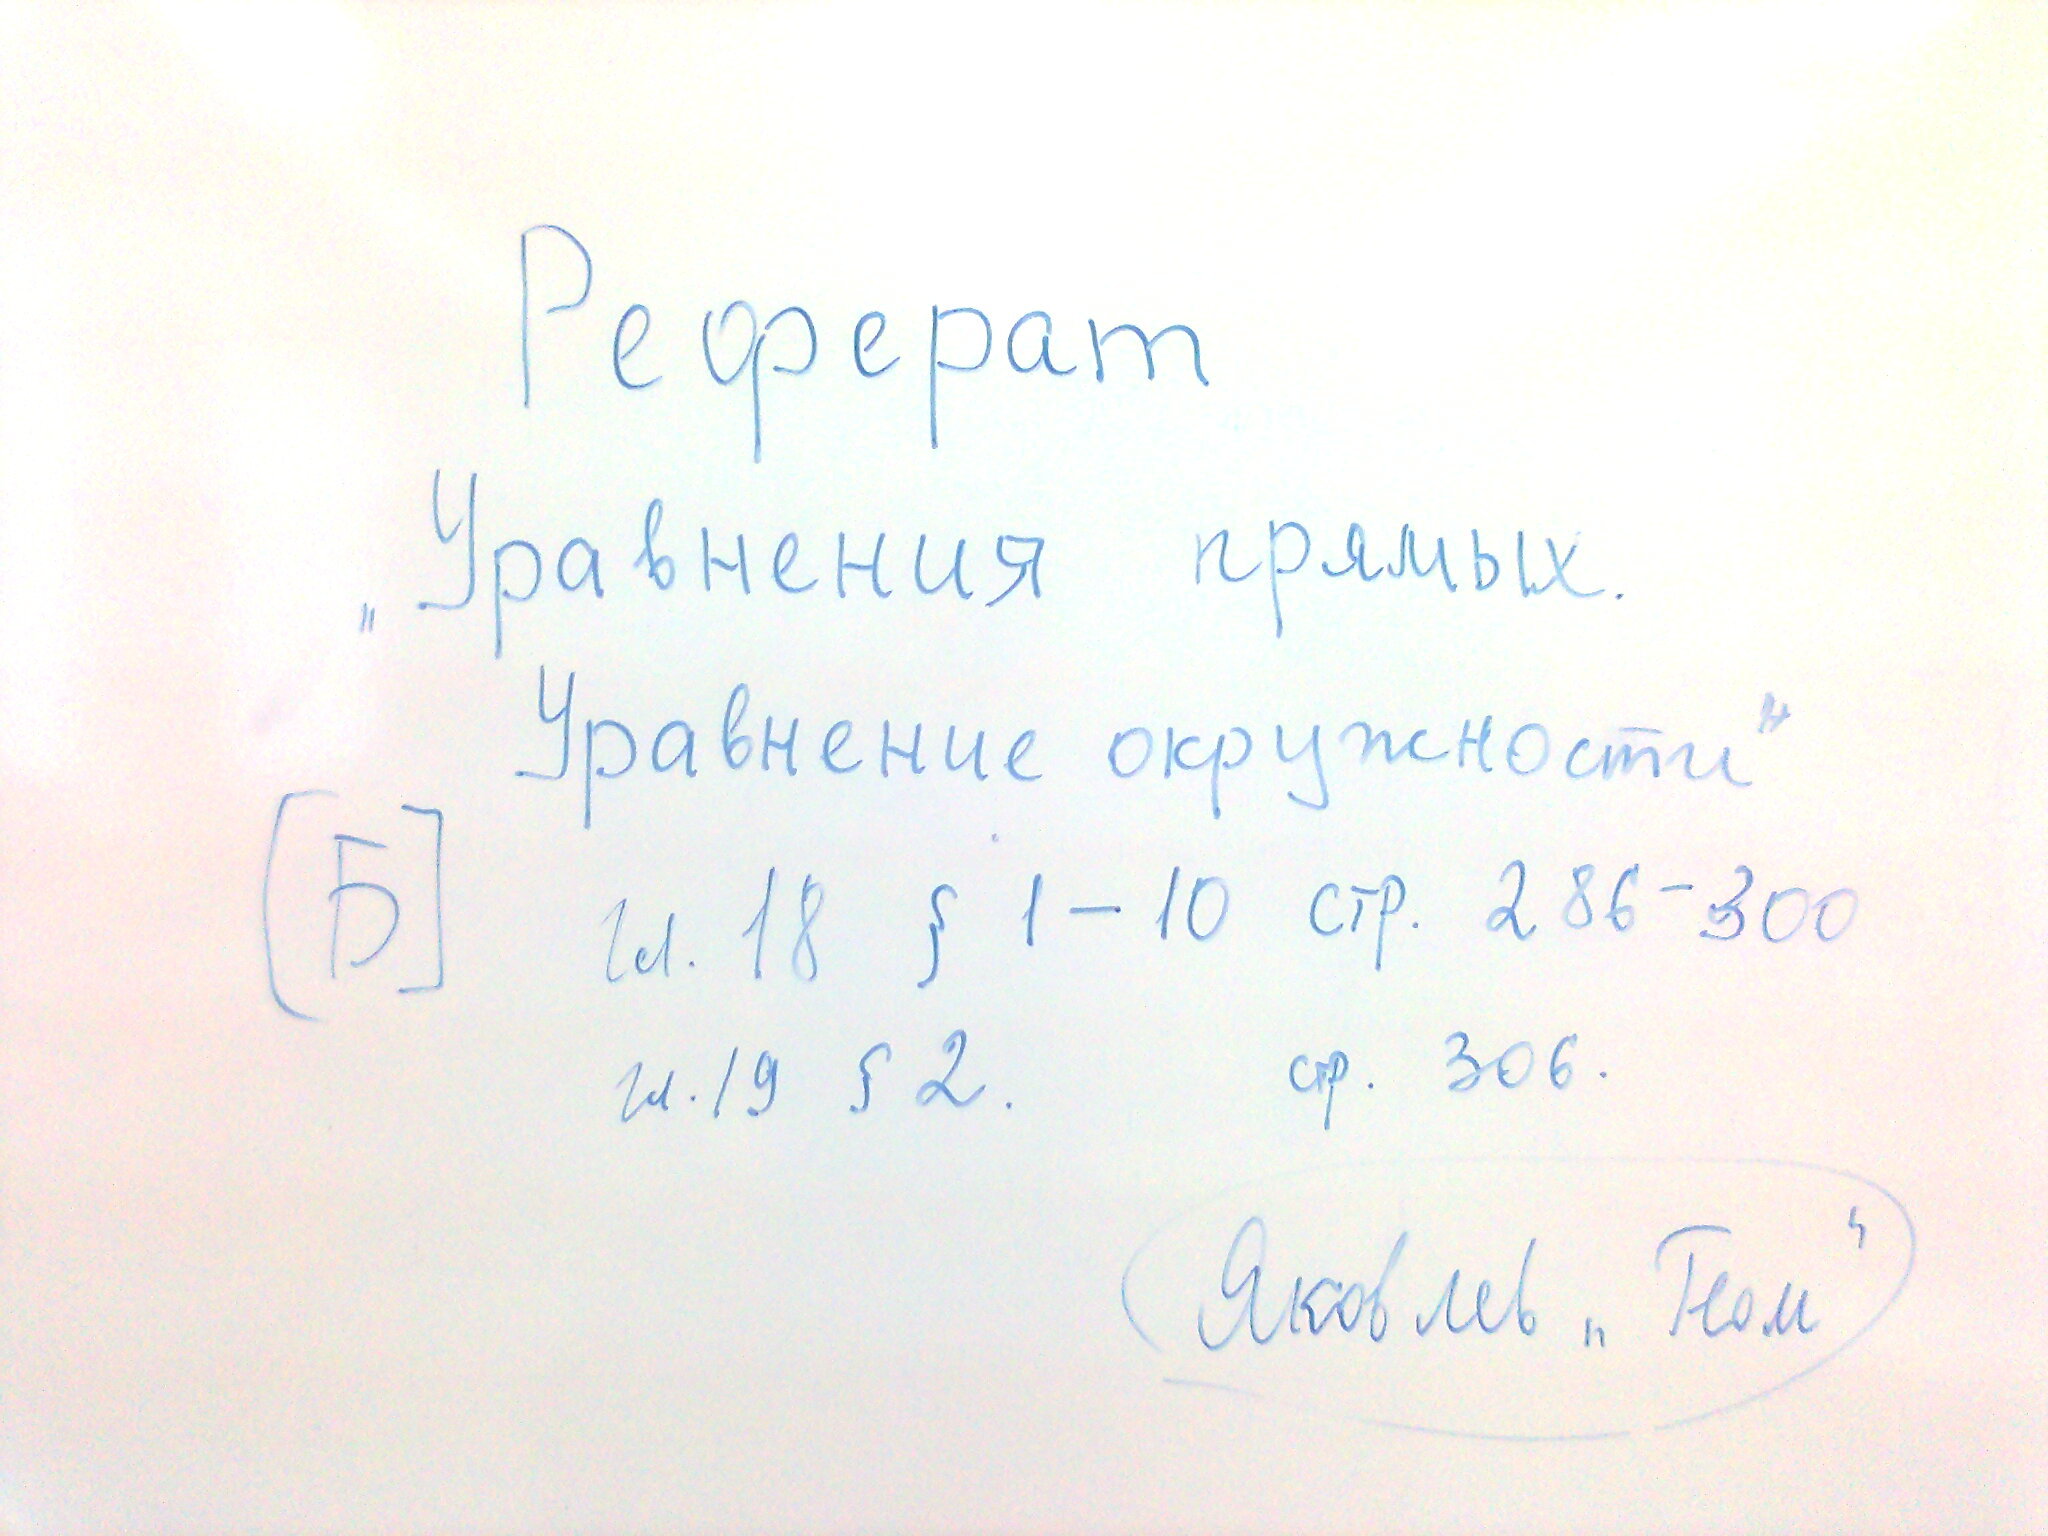 Реферат
„Уравнения прямых.
Уравнение окружности"
[Б] гл. 18 § 1-10 стр. 286-300
гл. 19 § 2. стр. 306.
Яковлев „Геом"